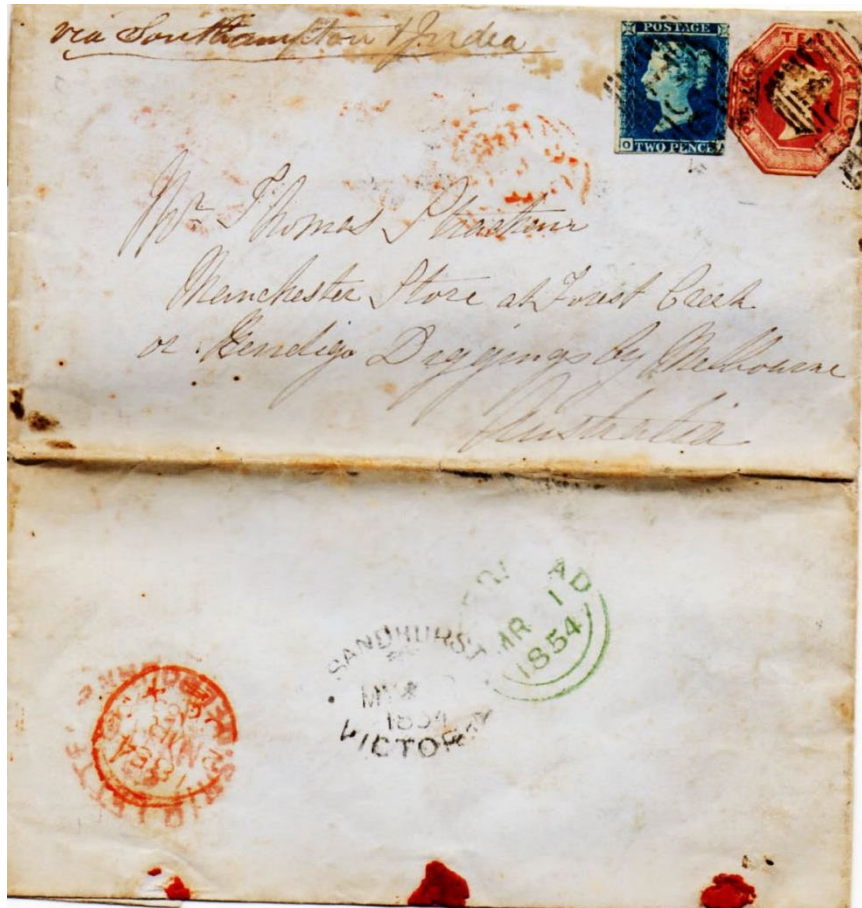 via Southampton & India
POSTAGE
TWO PENCE
O
TEN PENCE
POSTAGE
Mr Thomas
Manchester Store at Forest Creek
or Bendigo Diggings by Melbourne
Australia
AD
MR 1
1854
SANDHURST
MY
1854
VICTORIA
SHIP LETTER
1854